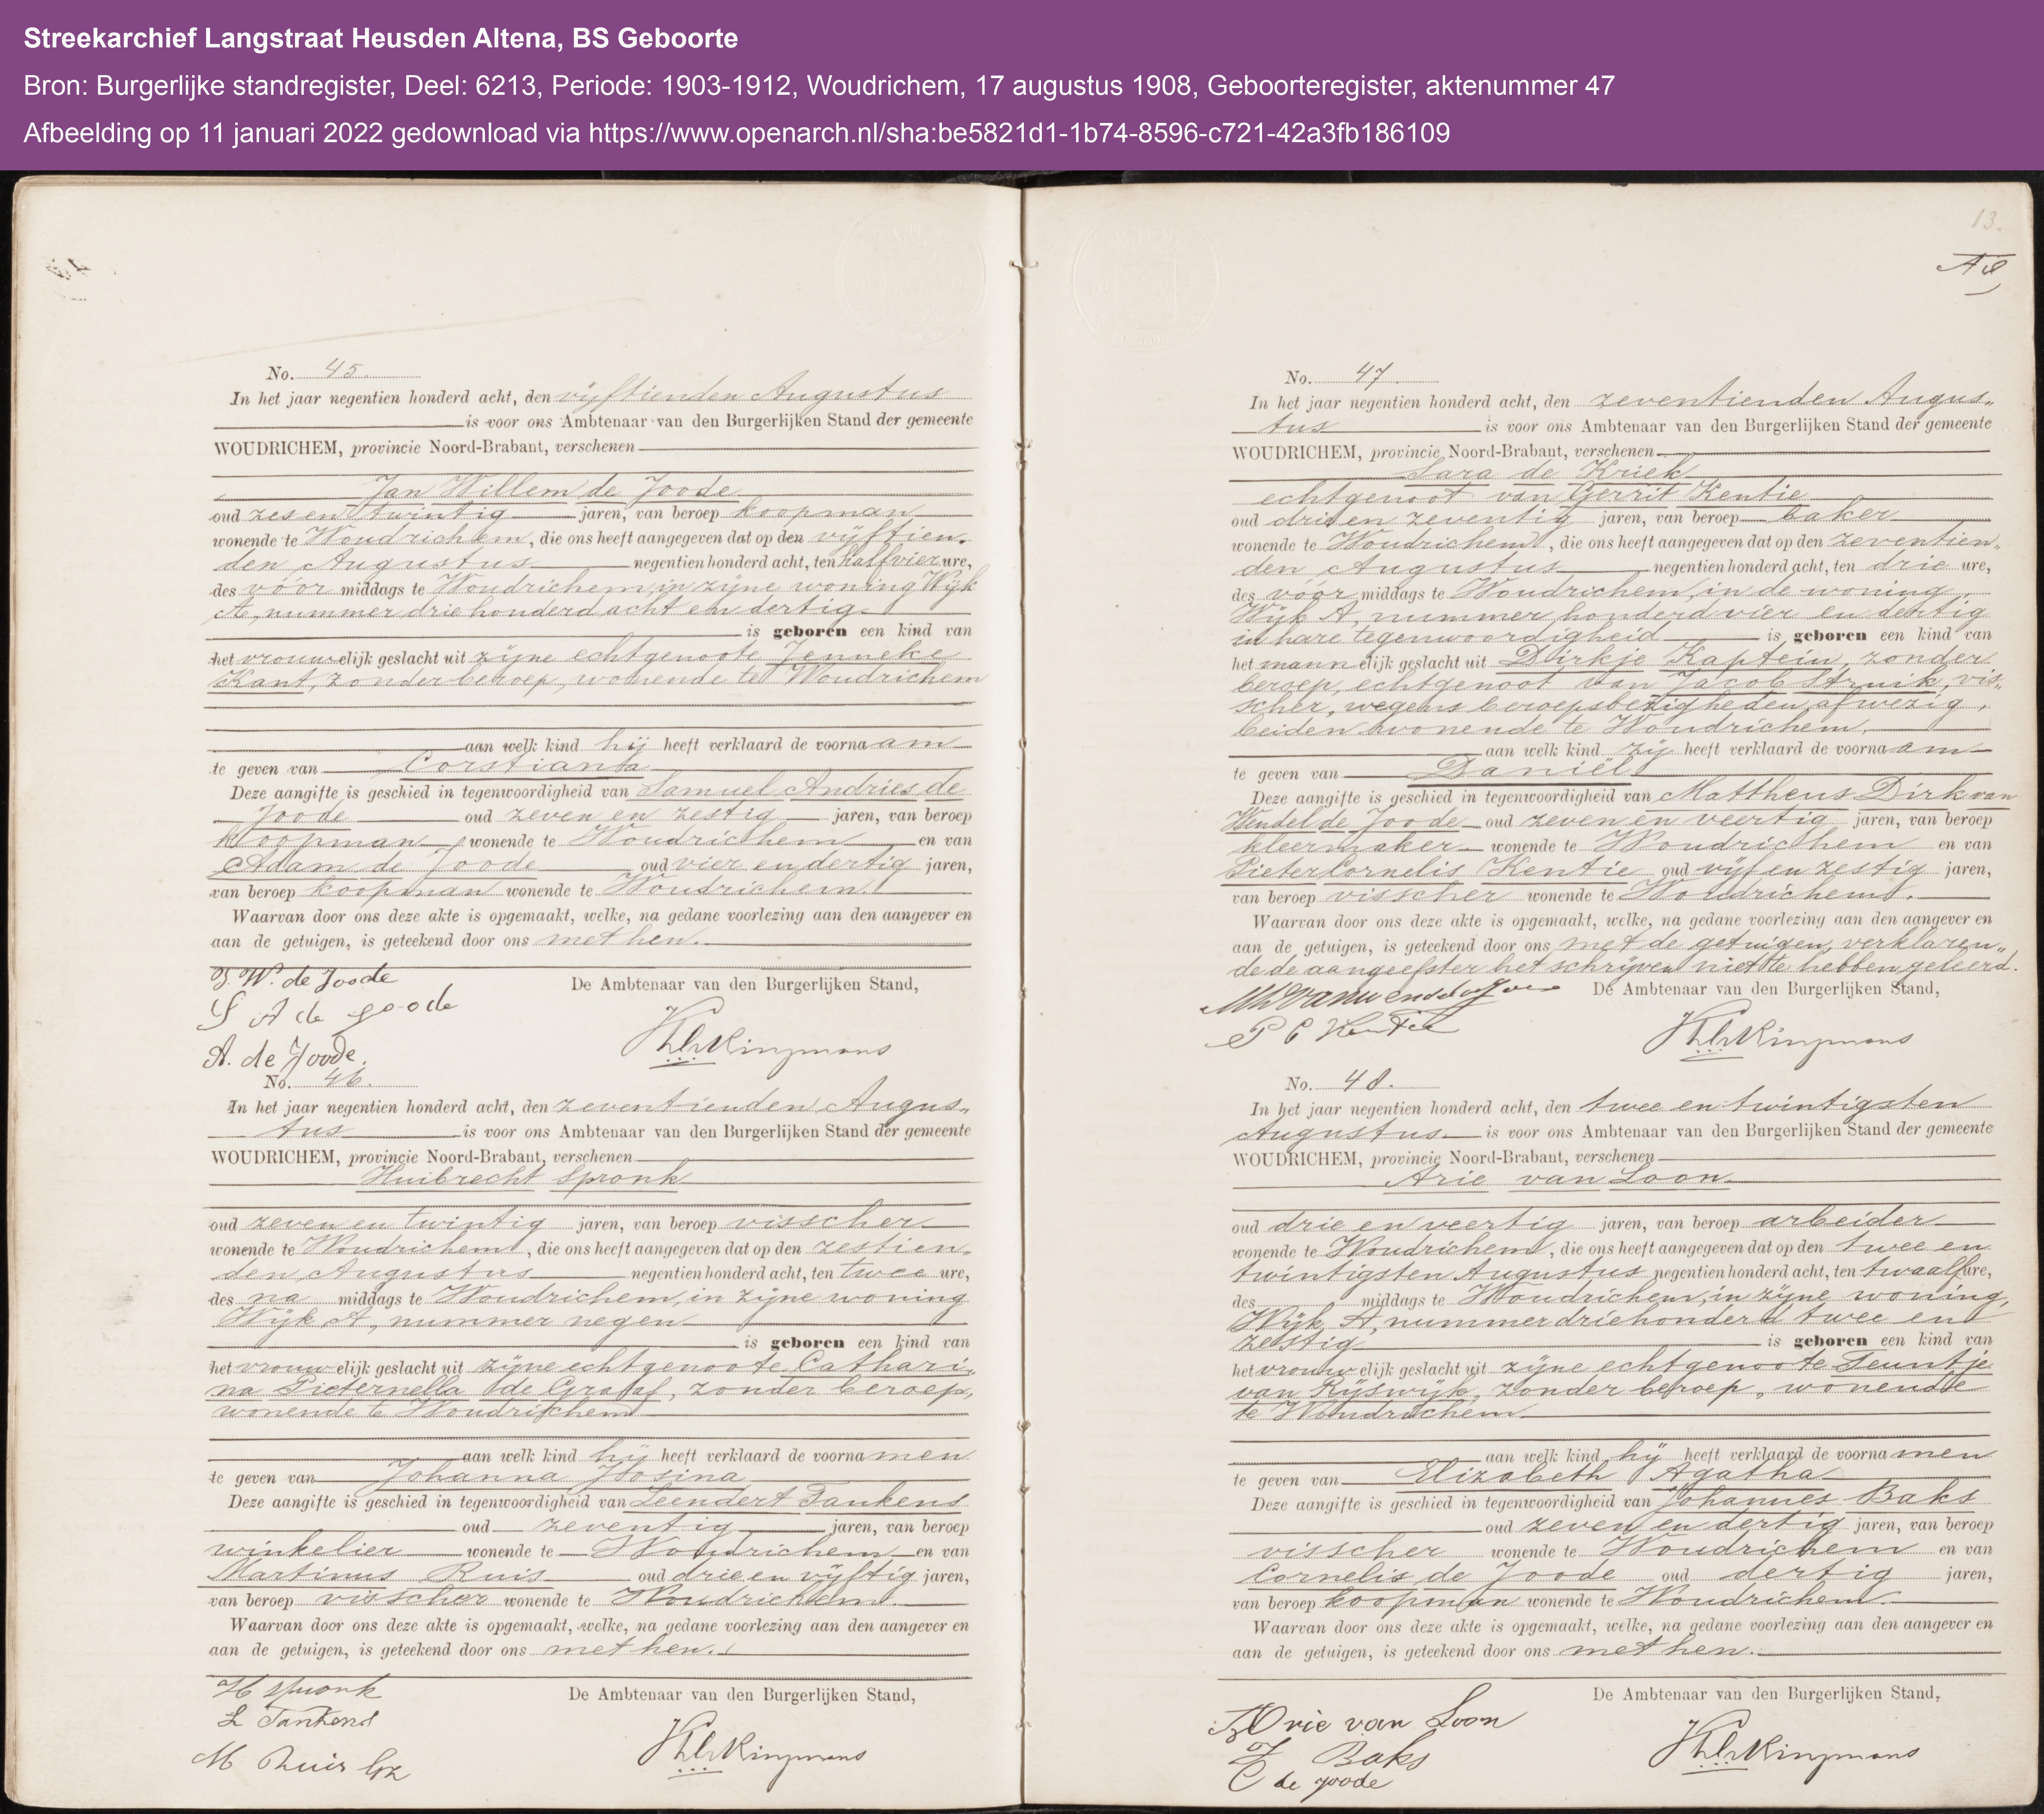 Streekarchief Langstraat Heusden Altena, BS Geboorte
Bron: Burgerlijke standregister, Deel: 6213, Periode: 1903-1912, Woudrichem, 17 augustus 1908, Geboorteregister, aktenummer 47
Afbeelding op 11 januari 2022 gedownload via https://www.openarch.nl/sha:be5821d1-1b74-8596-c721-42a3fb186109
No. 45.
In het jaar negentien honderd acht, den vijftienden Augustus
is voor ons Ambtenaar van den Burgerlijken Stand der gemeente
WOUDRICHEM, provincie Noord-Brabant, verschenen
Jan Willem de Joode
oud zes en twintig jaren, van beroep koopman
wonende te Woudrichem, die ons heeft aangegeven dat op den vijftien-
den Augustus negentien honderd acht, ten half vier ure,
des vóór middags te Woudrichem, in zijne woning Wijk
A, nummer drie honderd acht en dertig
is geboren een kind van
het vrouwelijk geslacht uit zijne echtgenoote Jenneke
Kant, zonder beroep, wonende te Woudrichem
aan welk kind hij heeft verklaard de voornaam
te geven van Corstiana
Deze aangifte is geschied in tegenwoordigheid van Samuel Andries de
Joode oud zeven en zestig jaren, van beroep
koopman wonende te Woudrichem en van
Adam de Joode oud vier en dertig jaren,
van beroep koopman wonende te Woudrichem
Waarvan door ons deze akte is opgemaakt, welke, na gedane voorlezing aan den aangever en
aan de getuigen, is geteekend door ons met hen.
J. W. de Joode
De Ambtenaar van den Burgerlijken Stand,
S A de Joode
A. de Joode.
No. 46.
In het jaar negentien honderd acht, den zeventienden Augus-
tus is voor ons Ambtenaar van den Burgerlijken Stand der gemeente
WOUDRICHEM, provincie Noord-Brabant, verschenen
Huibrecht Spronk
oud zeven en twintig jaren, van beroep visscher
wonende te Woudrichem, die ons heeft aangegeven dat op den zestien-
den Augustus negentien honderd acht, ten twee ure,
des na middags te Woudrichem, in zijne woning
Wijk A, nummer negen
is geboren een kind van
het vrouwelijk geslacht uit zijne echtgenoote Cathari-
na Pieternella de Graaf, zonder beroep,
wonende te Woudrichem
aan welk kind hij heeft verklaard de voornamen
te geven van Johanna Josina
Deze aangifte is geschied in tegenwoordigheid van Leendert Tankens
oud zeventig jaren, van beroep
winkelier wonende te Woudrichem en van
Martinus Ruis oud drie en vijftig jaren,
van beroep visscher wonende te Woudrichem.
Waarvan door ons deze akte is opgemaakt, welke, na gedane voorlezing aan den aangever en
aan de getuigen, is geteekend door ons met hen.
H Spronk
De Ambtenaar van den Burgerlijken Stand,
L Tankens
M Ruis
13.
No. 47.
In het jaar negentien honderd acht, den zeventienden Augus-
tus is voor ons Ambtenaar van den Burgerlijken Stand der gemeente
WOUDRICHEM, provincie Noord-Brabant, verschenen
Sara de Kriek
echtgenoot van Gerrit Kentie
oud drie en zeventig jaren, van beroep baker
wonende te Woudrichem, die ons heeft aangegeven dat op den zeventien-
den Augustus negentien honderd acht, ten drie ure,
des vóór middags te Woudrichem, in de woning
Wijk A, nummer honderd vier en dertig
in hare tegenwoordigheid is geboren een kind van
het mannelijk geslacht uit Dirkje Kaptein, zonder
beroep, echtgenoot van Jacob Struik, vis-
scher, wegens beroepsbezigheden afwezig,
beiden wonende te Woudrichem,
aan welk kind zij heeft verklaard de voornaam
te geven van Daniël
Deze aangifte is geschied in tegenwoordigheid van Mattheus Dirk van
Wendel de Joode oud zeven en veertig jaren, van beroep
kleermaker wonende te Woudrichem en van
Pieter Cornelis Kentie oud vijf en zestig jaren,
van beroep visscher wonende te Woudrichem.
Waarvan door ons deze akte is opgemaakt, welke, na gedane voorlezing aan den aangever en
aan de getuigen, is geteekend door ons met de getuigen, verklaren-
de de aangeefster het schrijven niet te hebben geleerd.
De Ambtenaar van den Burgerlijken Stand,
P C Kentie
No. 48.
In het jaar negentien honderd acht, den twee en twintigsten
Augustus is voor ons Ambtenaar van den Burgerlijken Stand der gemeente
WOUDRICHEM, provincie Noord-Brabant, verschenen
Arie van Loon
oud drie en veertig jaren, van beroep arbeider
wonende te Woudrichem, die ons heeft aangegeven dat op den twee en
twintigsten Augustus negentien honderd acht, ten twaalf ure,
des middags te Woudrichem, in zijne woning,
Wijk A, nummer driehonderd twee en
zestig is geboren een kind van
het vrouwelijk geslacht uit zijne echtgenoote Teuntje
van Rijswijk, zonder beroep, wonende
te Woudrichem
aan welk kind hij heeft verklaard de voornamen
te geven van Elizabeth Agatha
Deze aangifte is geschied in tegenwoordigheid van Johannes Baks
oud zeven en dertig jaren, van beroep
visscher wonende te Woudrichem en van
Cornelis de Joode oud dertig jaren,
van beroep koopman wonende te Woudrichem.
Waarvan door ons deze akte is opgemaakt, welke, na gedane voorlezing aan den aangever en
aan de getuigen, is geteekend door ons met hen.
De Ambtenaar van den Burgerlijken Stand,
Arie van Loon
Baks
C de Joode